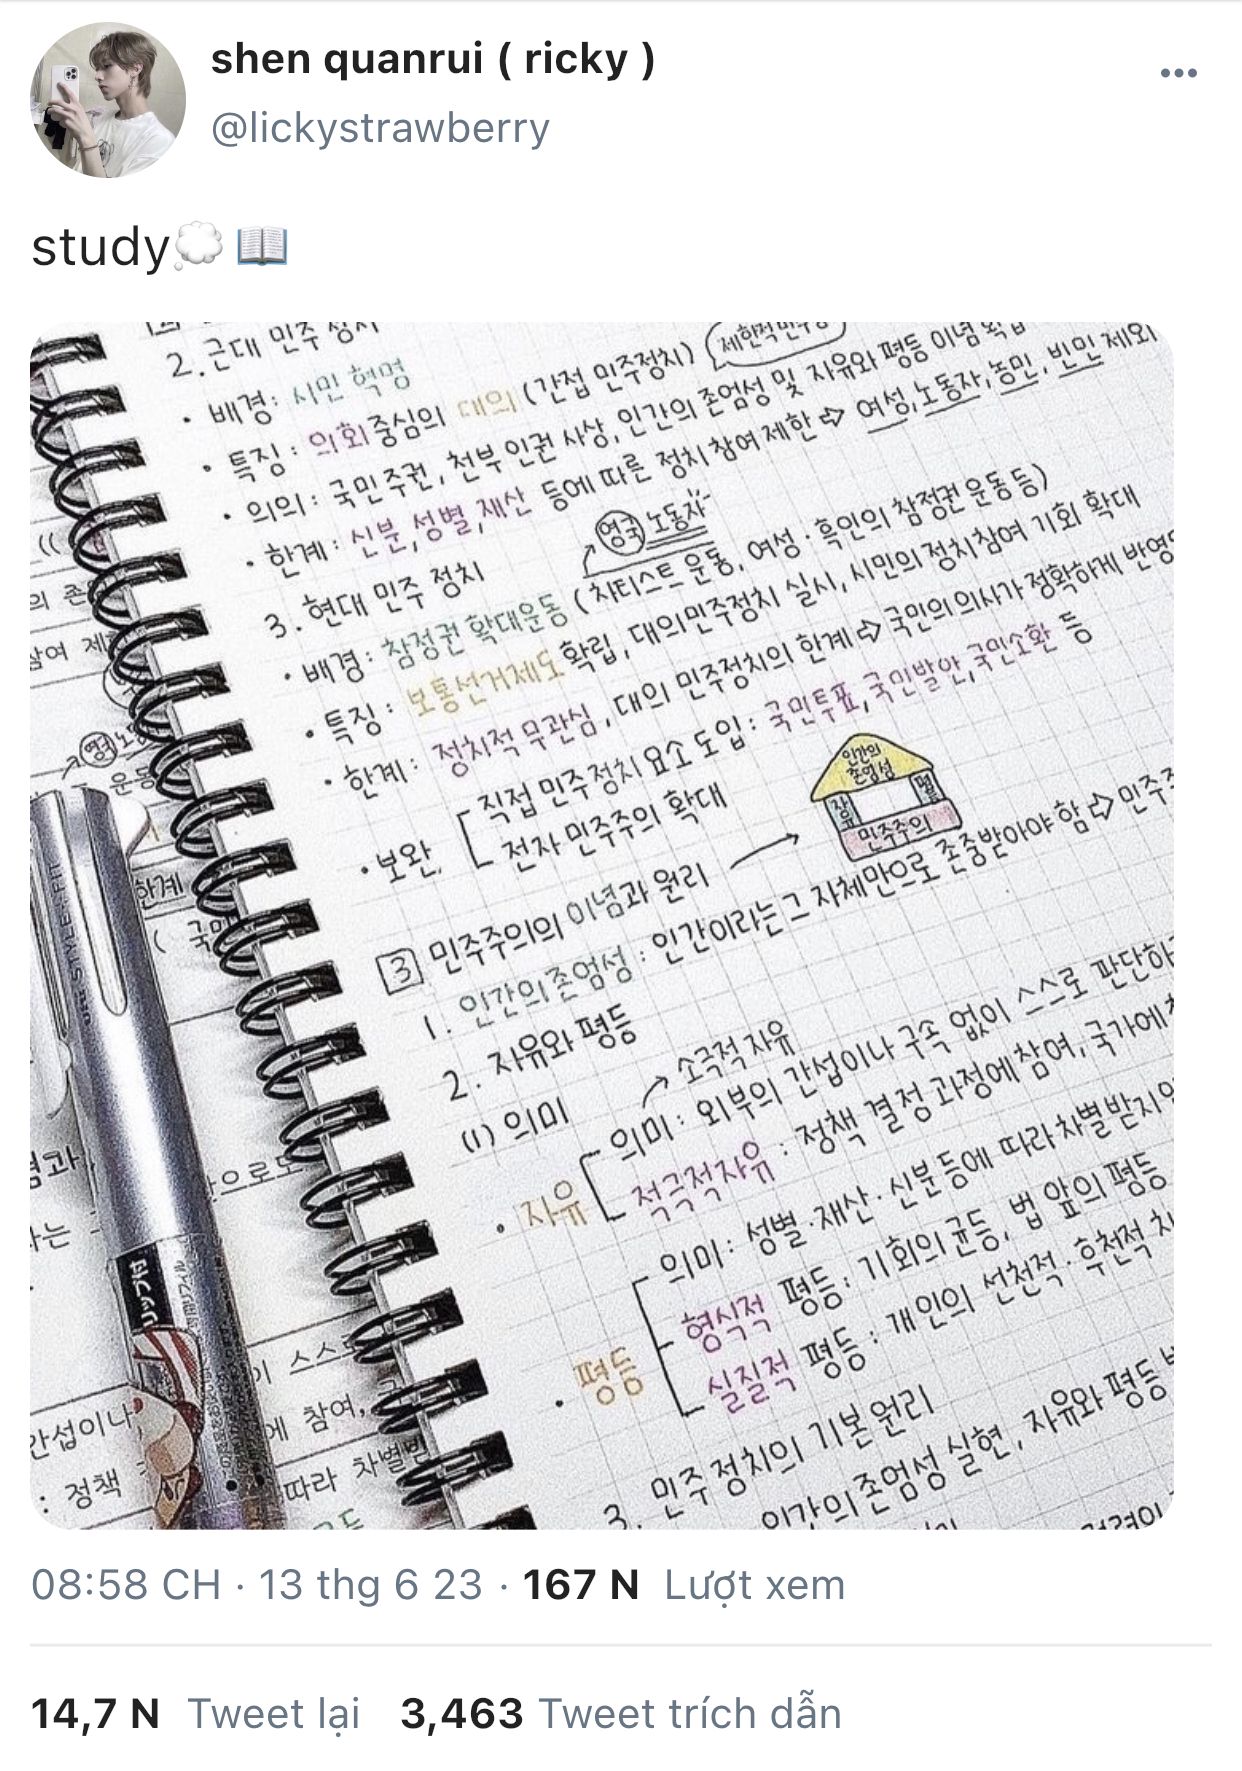 shen quanrui ( ricky )
@lickystrawberry
study💭 📖
2. 근대 민주 정치
• 배경: 시민 혁명
• 특징: 의회 중심의 대의 (간접 민주정치)
• 의의: 국민주권, 천부인권 사상, 인간의 존엄성 및 자유와 평등 이념 확립
• 한계: 신분, 성별, 재산 등에 따른 정치 참여 제한 ⇨ 여성, 노동자, 농민, 빈민 제외
3. 현대 민주 정치
영국 노동자
• 배경: 참정권 확대운동 (차티스트 운동, 여성·흑인의 참정권 운동 등)
• 특징: 보통선거제도 확립, 대의민주정치 실시, 시민의 정치참여 기회 확대
• 한계: 정치적 무관심, 대의 민주정치의 한계 ⇨ 국민의 의사가 정확하게 반영
• 보완
직접 민주정치 요소 도입: 국민투표, 국민발안, 국민소환 등
전자 민주주의 확대
3 민주주의의 이념과 원리
인간의
존엄성
자유
평등
민주주의
1. 인간의 존엄성: 인간이라는 그 자체만으로 존중받아야 함 ⇨
2. 자유와 평등
(1) 의미
소극적 자유
• 자유
의미: 외부의 간섭이나 구속 없이 스스로 판단하
적극적자유: 정책 결정 과정에 참여, 국가에
• 평등
의미: 성별·재산·신분 등에 따라 차별받지
형식적 평등: 기회의 균등, 법 앞의 평등
실질적 평등: 개인의 선천적·후천적
3. 민주 정치의 기본 원리
인간의 존엄성 실현, 자유와 평등
한계
운동
으로도
간섭이나
: 정책
이 스스
에 참여,
따라 차별
STYLE FIT
08:58 CH · 13 thg 6 23 · 167 N Lượt xem
14,7 N Tweet lại 3,463 Tweet trích dẫn